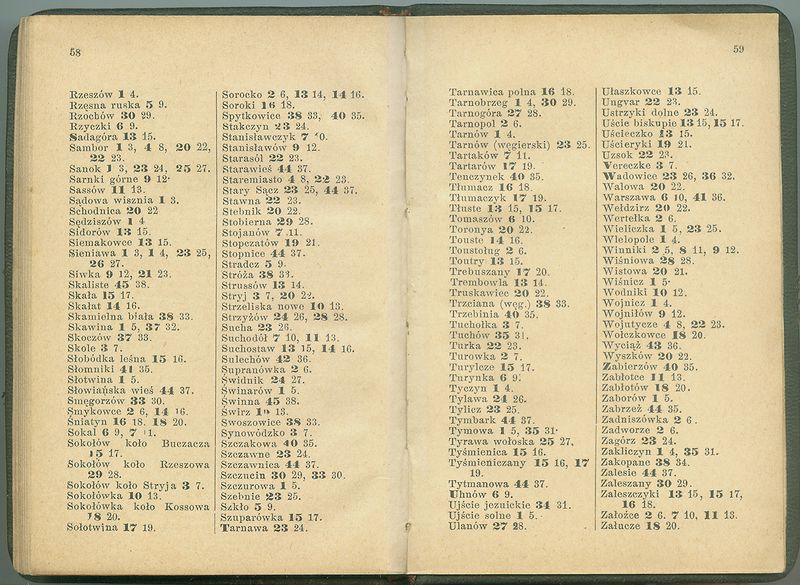 58
Rzeszów 1 4.
Rzęsna ruska 5 9.
Rzochów 30 29.
Rzyczki 6 9.
Sadagóra 13 15.
Sambor 1 3, 4 8, 20 22,
22 23.
Sanok 1 3, 23 24, 25 27.
Sarnki górne 9 12
Sassów 11 13.
Sądowa wisznia 1 3.
Schodnica 20 22
Sędziszów 1 4
Sidorów 13 15.
Siemakowce 13 15.
Sieniawa 1 3, 1 4, 23 25,
26 27.
Siwka 9 12, 21 23.
Skaliste 45 38.
Skała 15 17.
Skałat 14 16.
Skamielna biała 38 33.
Skawina 1 5, 37 32.
Skoczów 37 33.
Skole 3 7.
Słobódka leśna 15 16.
Słomniki 41 35.
Słotwina 1 5.
Słowiańska wieś 44 37.
Smęgorzów 33 30.
Smykowce 2 6, 14 16.
Śniatyn 16 18. 18 20.
Sokal 6 9, 7
Sokołów koło Buczacza
15 17.
Sokołów koło Rzeszowa
29 28.
Sokołów koło Stryja 3 7.
Sokołówka 10 13.
Sokołówka koło Kossowa
18 20.
Sołotwina 17 19.
Sorocko 2 6, 13 14, 14 16.
Soroki 16 18.
Spytkowice 38 33, 40 35.
Stakczyn 23 24.
Stanisławczyk 7
Stanisławów 9 12.
Starasól 22 23.
Starawieś 44 37.
Staremiasto 4 8, 22 23.
Stary Sącz 23 25, 44 37.
Stawna 22 23.
Stebnik 20 22.
Stobierna 29 28.
Stojanów 7 11.
Stopczatów 19 21.
Stopnice 44 37.
Stradcz 5 9.
Stróża 38 33.
Strussów 13 14.
Stryj 3 7, 20 22.
Strzeliska nowe 10 13.
Strzyżów 24 26, 28 28.
Sucha 23 26.
Suchodół 7 10, 11 13.
Suchostaw 13 15, 14 16.
Sulechów 42 36.
Supranówka 2 6.
Świdnik 24 27.
Świnarów 1 5.
Świnna 45 38.
Świrz 13.
Swoszowice 38 33.
Synowódzko 3 7.
Szczakowa 40 35.
Szczawne 23 24.
Szczawnica 44 37.
Szczucin 30 29, 33 30.
Szczurowa 1 5.
Szebnie 23 25.
Szkło 5 9.
Szuparówka 15 17.
Tarnawa 23 24.
59
Tarnawica polna 16 18.
Tarnobrzeg 1 4, 30 29.
Tarnogóra 27 28.
Tarnopol 2 6.
Tarnów 1 4.
Tarnów (węgierski) 23 25.
Tartaków 7 11.
Tartarów 17 19.
Tenczynek 40 35.
Tłumacz 16 18.
Tłumaczyk 17 19.
Tłuste 13 15, 15 17.
Tomaszów 6 10.
Toronya 20 22.
Touste 14 16.
Toustoług 2 6.
Toutry 13 15.
Trebuszany 17 20.
Trembowla 13 14.
Truskawiec 20 22.
Trzciana (węg.) 38 33.
Trzebinia 40 35.
Tucholka 3 7.
Tuchów 35 31.
Turka 22 23.
Turowka 2 7.
Turylcze 15 17.
Turynka 6 9.
Tyczyn 1 4.
Tylawa 24 26.
Tylicz 23 25.
Tymbark 44 37.
Tymowa 1 5, 35 31.
Tyrawa wołoska 25 27.
Tyśmienica 15 16.
Tyśmieniczany 15 16, 17
19.
Tytmanowa 44 37.
Uhnów 6 9.
Ujście jezuickie 34 31.
Ujście solne 1 5.
Ulanów 27 28.
Ułaszkowce 13 15.
Ungvar 22 23.
Ustrzyki dolne 23 24.
Uście biskupie 13 15, 15 17.
Uścieczko 13 15.
Uścieryki 19 21.
Uzsok 22 23.
Vereczke 3 7.
Wadowice 23 26, 36 32.
Walowa 20 22.
Warszawa 6 10, 41 36.
Wełdzirz 20 22.
Wertełka 2 6.
Wieliczka 1 5, 23 25.
Wielopole 1 4.
Winniki 2 5, 8 11, 9 12.
Wiśniowa 28 28.
Wistowa 20 21.
Wiśnicz 1 5.
Wodniki 10 12.
Wojnicz 1 4.
Wojniłów 9 12.
Wojutycze 4 8, 22 23.
Wołczkowce 18 20.
Wyciąż 43 36.
Wyszków 20 22.
Zabierzów 40 35.
Zabłotce 11 13.
Zabłotów 18 20.
Zaborów 1 5.
Zabrzeż 44 35.
Zadniszówka 2 6.
Zadworze 2 6.
Zagórz 23 24.
Zakliczyn 1 4, 35 31.
Zakopane 38 34.
Zalesie 44 37.
Zaleszany 30 29.
Zaleszczyki 13 15, 15 17,
16 18.
Załoźce 2 6. 7 10, 11 13.
Załucze 18 20.